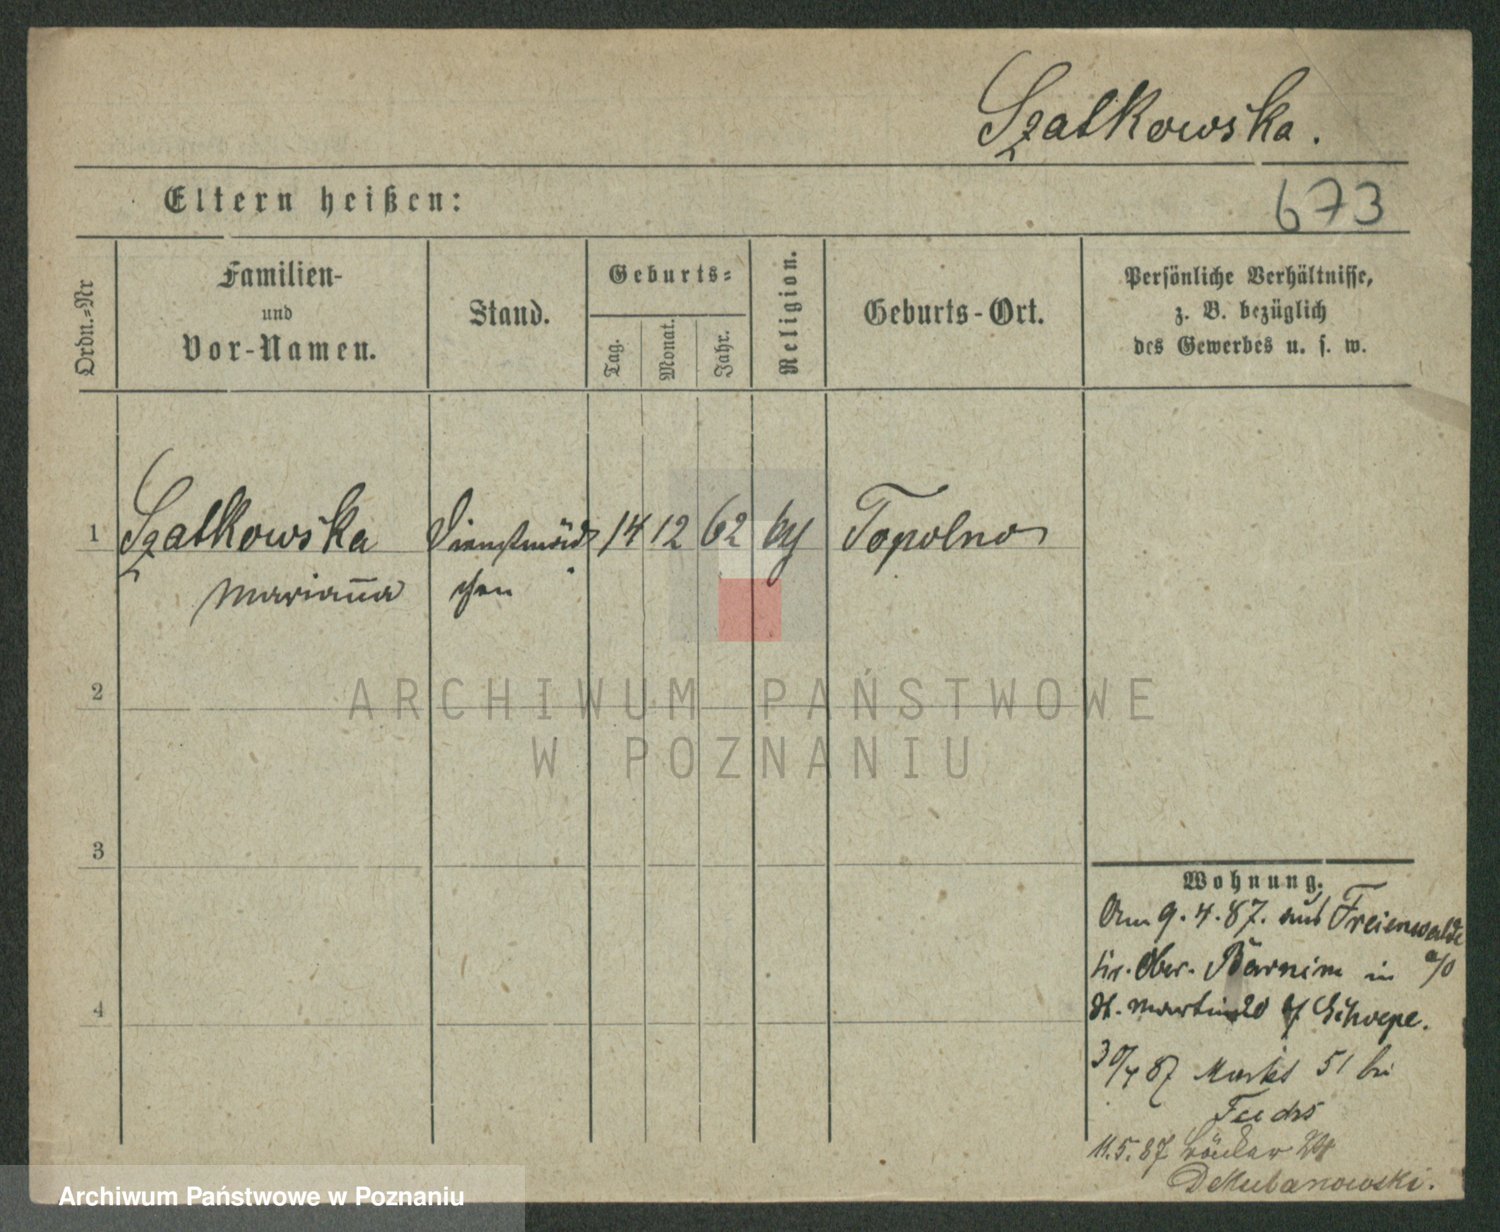 Szatkowska.
Eltern heißen:
673
Ordn.-Nr
Familien-
und
Vor-Namen.
Stand.
Geburts-
Tag.
Monat.
Jahr.
Religion.
Geburts-Ort.
Persönliche Verhältnisse,
z. B. bezüglich
des Gewerbes u. s. w.
1 Szatkowska Dienstmäd 14 12 62 Topolno
Marianna chen
2
ARCHIWUM PAŃSTWOWE
W POZNANIU
3
Wohnung.
Am 9.4.87. aus Freienwalde
Kr. Ober. Barnim in a/O
4
St. Martin 20 Schoepe.
30/4 87 Markt 51 bei
Fuchs
11.5.87
Dekubanowski.
Archiwum Państwowe w Poznaniu